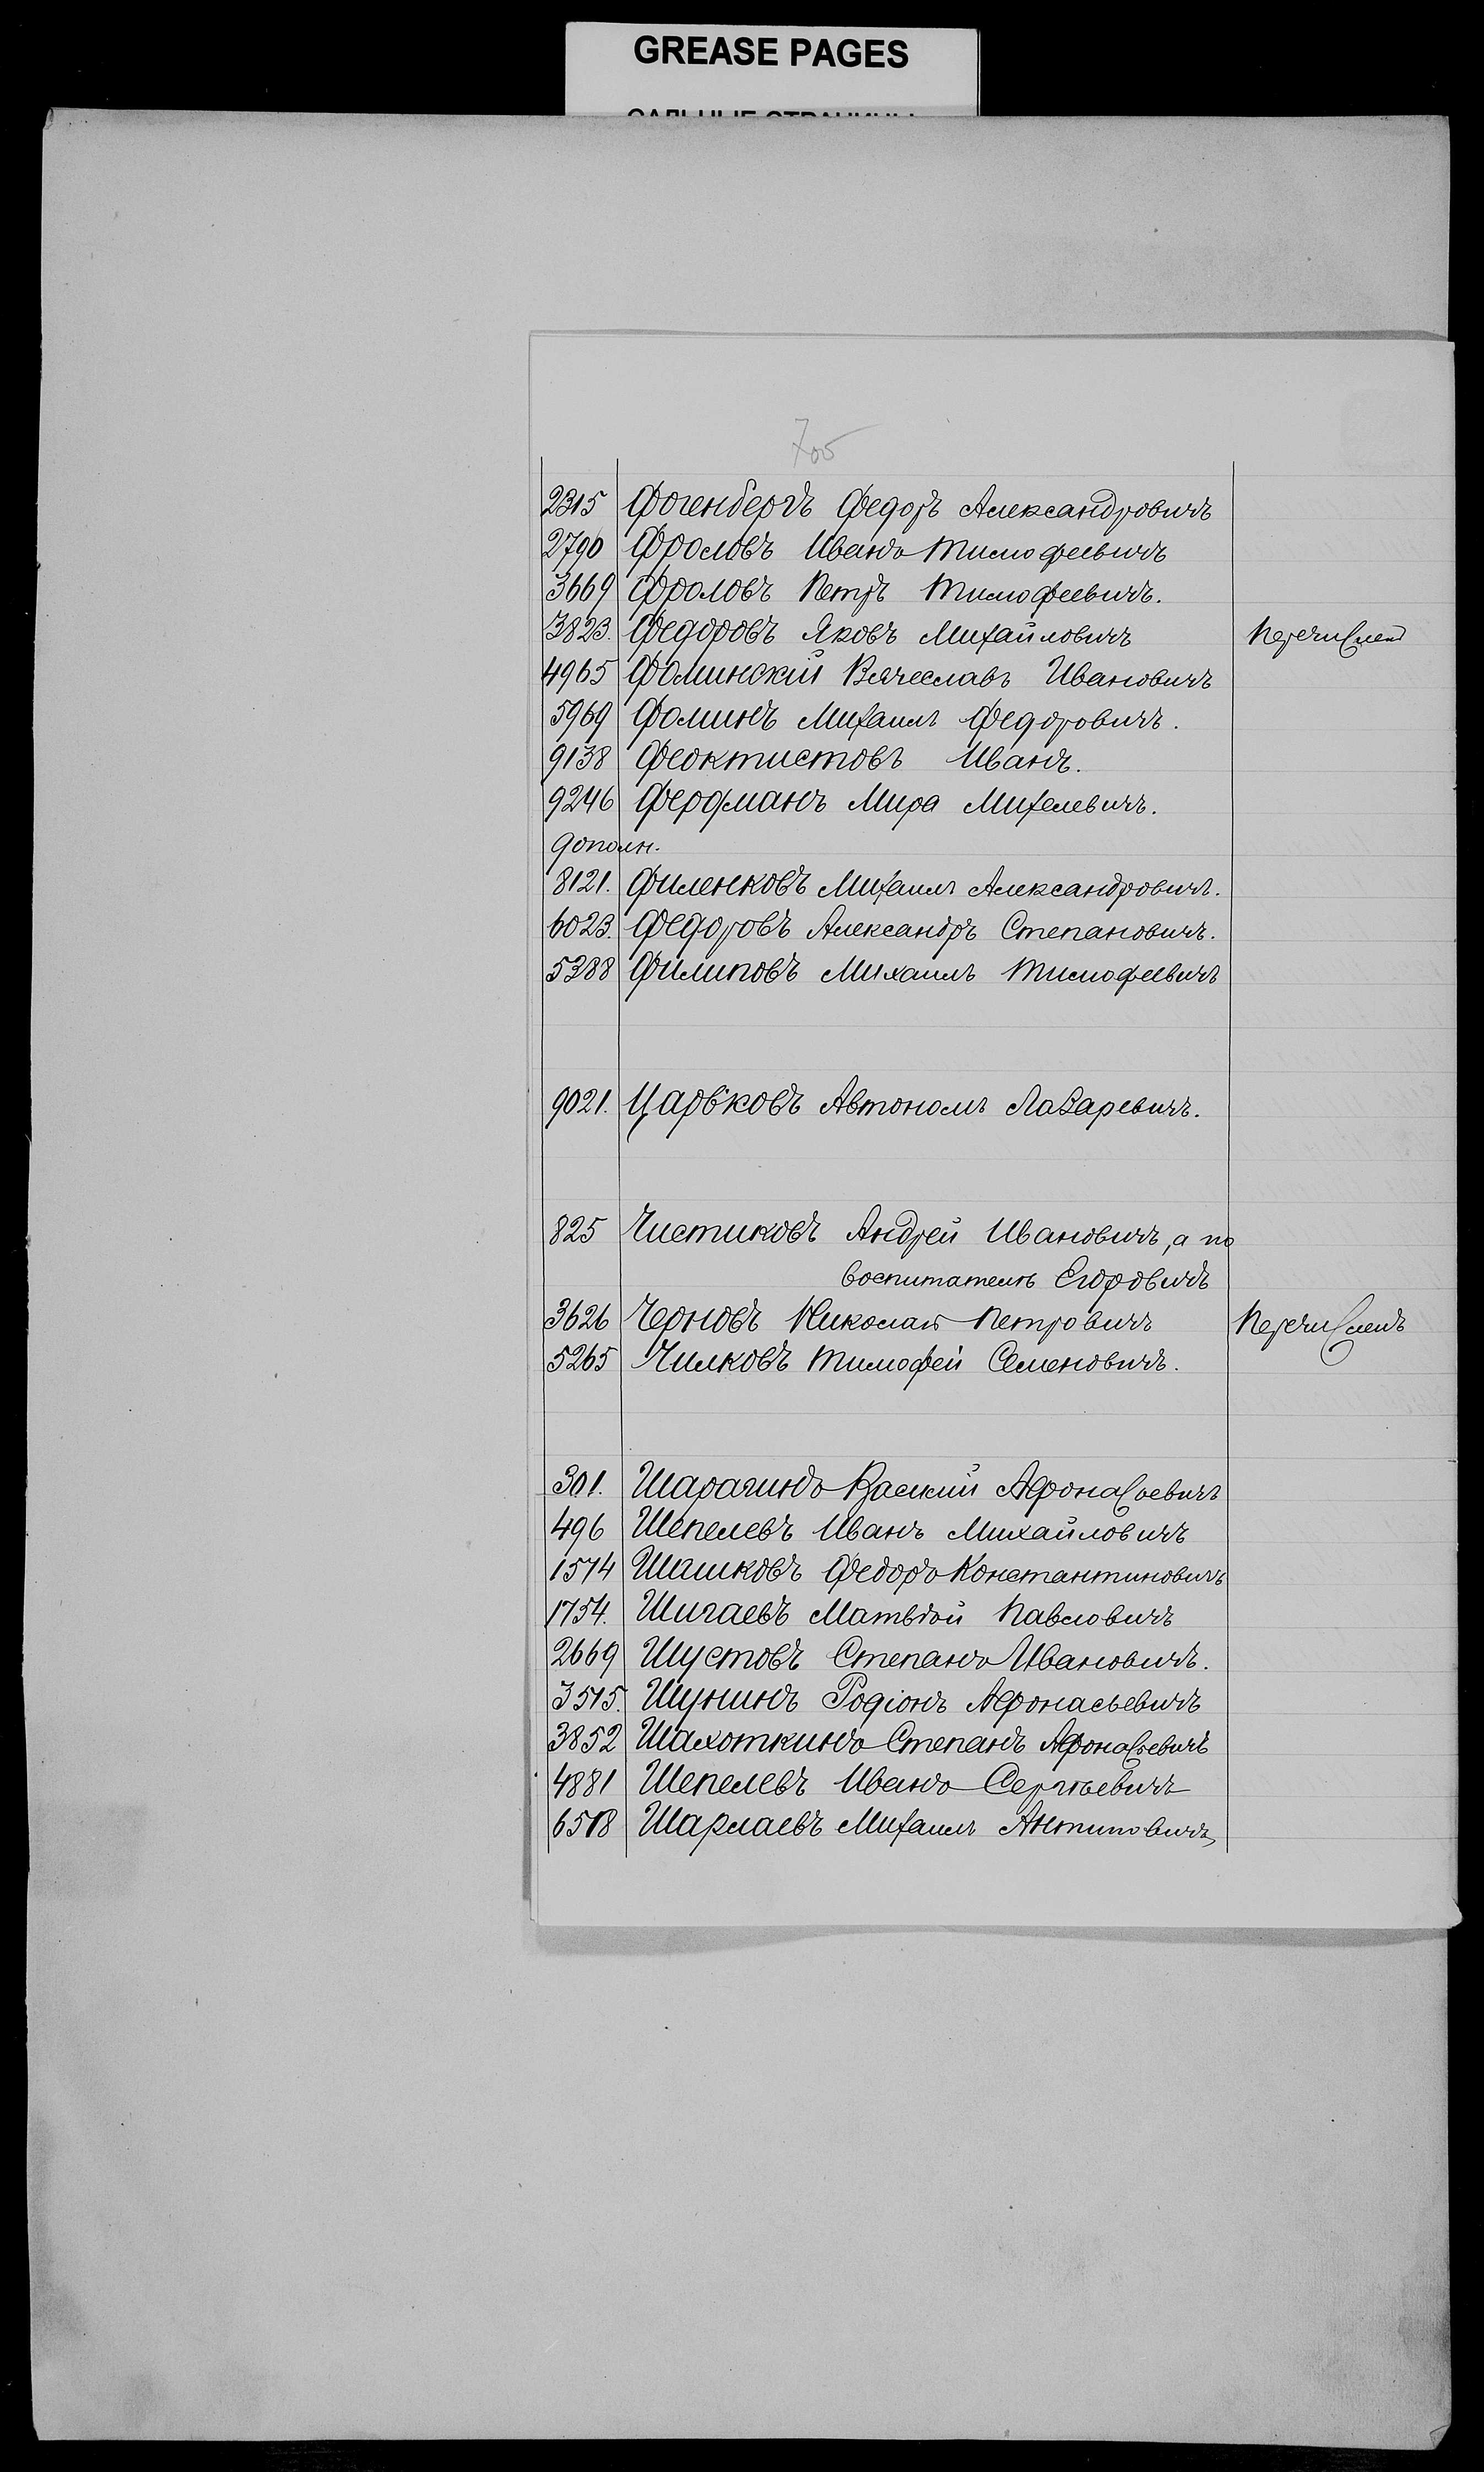 GREASE PAGES
САЛЬНЫЕ СТРАНИЦЫ
700
2315 Фогенбергъ Федоръ Александровичъ
2790 Фроловъ Иванъ Тимофеевичъ
3669 Фроловъ Петръ Тимофеевичъ.
3823. Федоровъ Яковъ Михайловичъ Перечисленъ
4965 Фоминскій Вячеславъ Ивановичъ
5969 Фоминъ Михаилъ Федоровичъ.
9138 Феоктистовъ Иванъ.
9246 Ферфманъ Мира Михелевичъ.
дополн.
8121. Филенковъ Михаилъ Александровичъ.
6023. Федоровъ Александръ Степановичъ.
5388 Филиповъ Михаилъ Тимофеевичъ
9021. Царьковъ Автономъ Лазаревичъ.
825 Чистиковъ Андрей Ивановичъ, а по
воспитателю Егоровичъ
3626 Черновъ Николай Петровичъ Перечисленъ
5265 Чилковъ Тимофей Семеновичъ.
301. Шарагинъ Афонасьевичъ
496 Шепелевъ Иванъ Михайловичъ
1574 Шашковъ Федоръ Константиновичъ
1754. Шигаевъ Матвѣй Павловичъ
2669 Шустовъ Степанъ Ивановичъ.
3515. Шунинъ Родіонъ Афонасьевичъ
3852 Шахоткинъ Степанъ Афонасьевичъ
4881 Шепелевъ Иванъ Сергѣевичъ
6518 Шарлаевъ Михаилъ Антиповичъ,